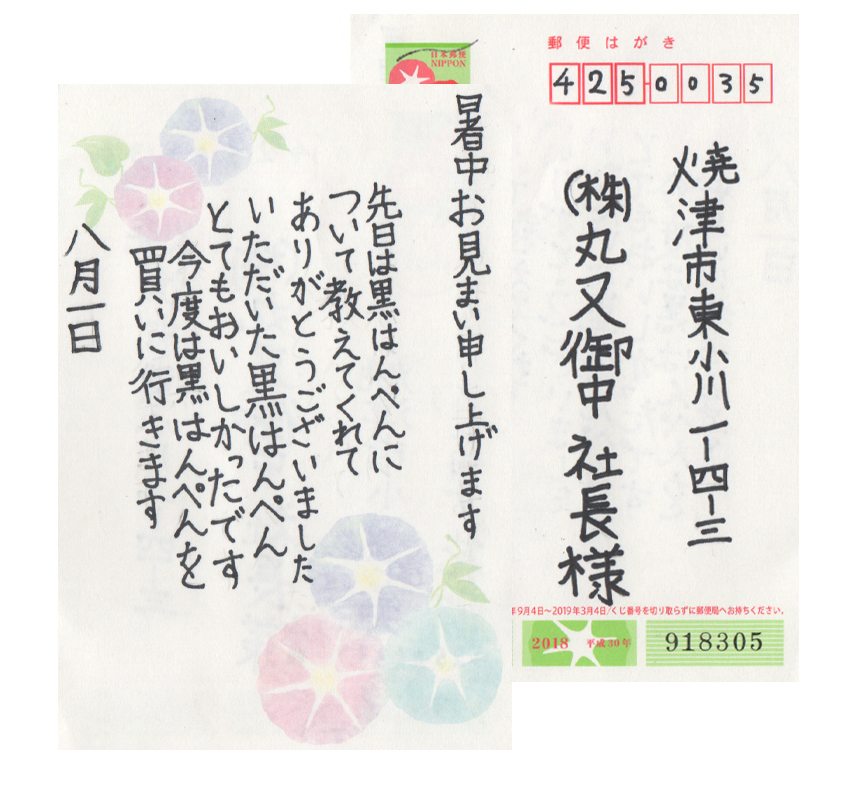 暑中お見まい申し上げます
先日は黒はんぺんに
ついて教えてくれて
ありがとうございました
いただいた黒はんぺん
とてもおいしかったです
今度は黒はんぺんを
買いに行きます
八月一日
日本郵便
NIPPON
郵便はがき
4250035
焼津市東小川一-四-三
(株)丸又御中 社長様
年9月4日~2019年3月4日/くじ番号を切り取らずに郵便局へお持ちください。
2018 平成30年
918305